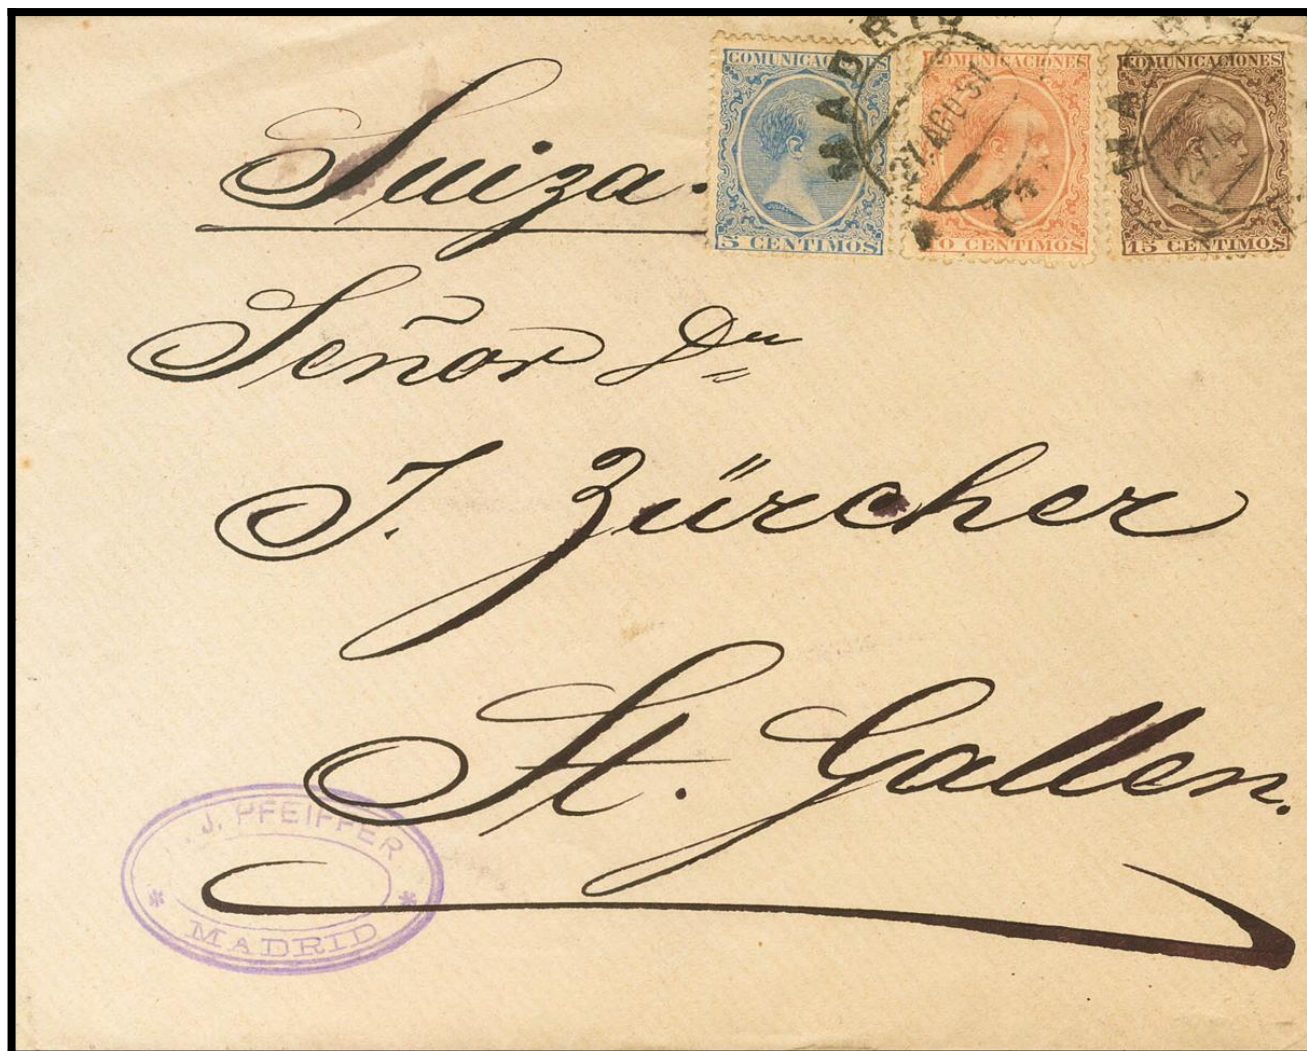 Suiza.
COMUNICACIONES
5 CENTIMOS
COMUNICACIONES
10 CENTIMOS
COMUNICACIONES
15 CENTIMOS
MADRID
27.AGO.91
MADRID
Señor Dn
J. Zürcher
St. Gallen.
J. PFEIFFER
* MADRID *